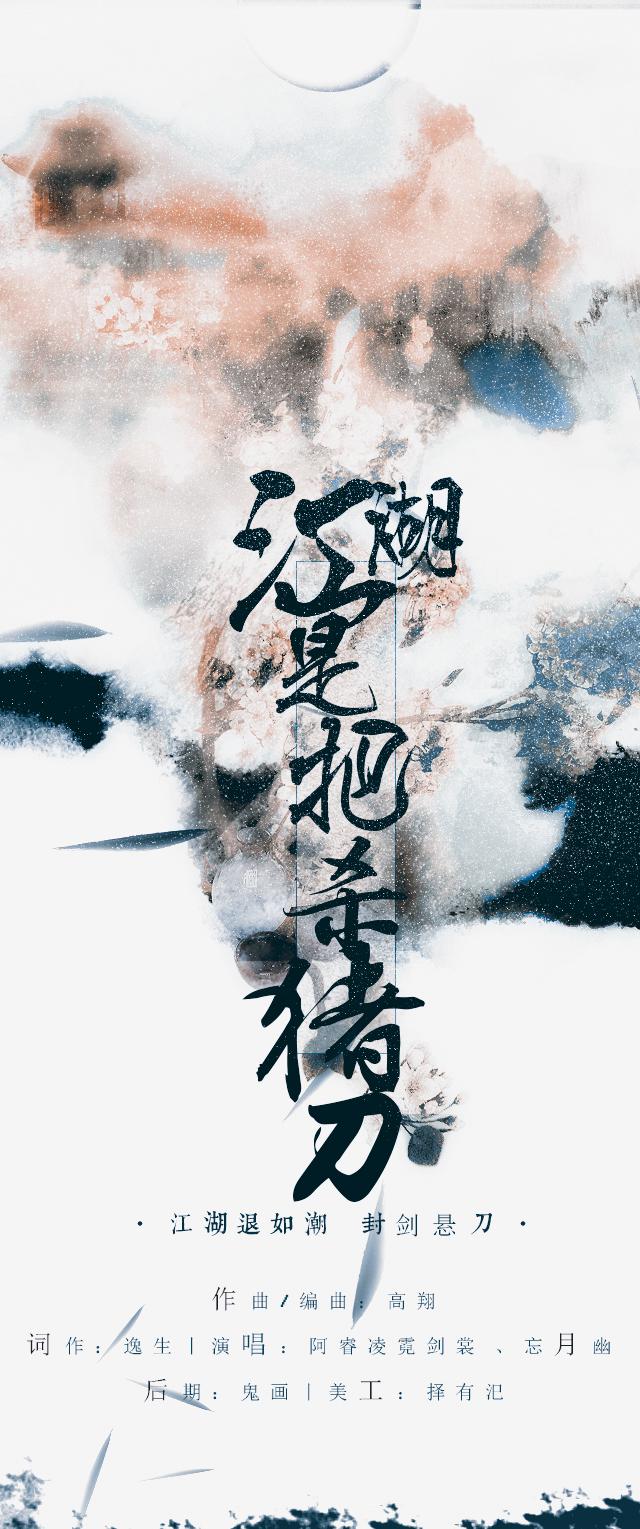 江湖是把杀猪刀
· 江湖退如潮 封剑悬刀 ·
作曲/编曲：高翔
词作：逸生|演唱：阿睿凌霓剑裳、忘月幽
后期：鬼画|美工：择有汜